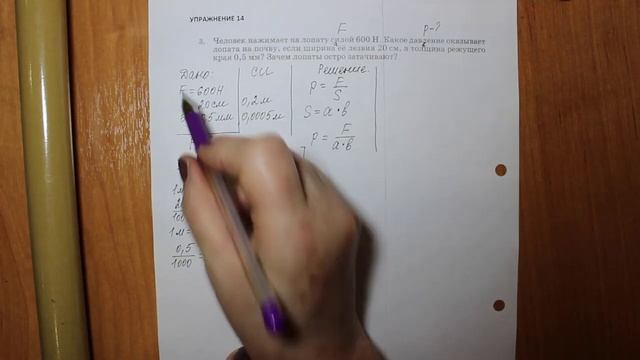 УПРАЖНЕНИЕ 14
F p-?
3. Человек нажимает на лопату силой 600 Н. Какое давление оказывает
лопата на почву, если ширина её лезвия 20 см, а толщина режущего
края 0,5 мм? Зачем лопаты остро затачивают?
Дано: СИ Решение:
F = 600Н p = F/S
20см 0,2м S = a·b
5мм 0,0005м
p = F/a·b
1м
1м =
0,5/1000 =